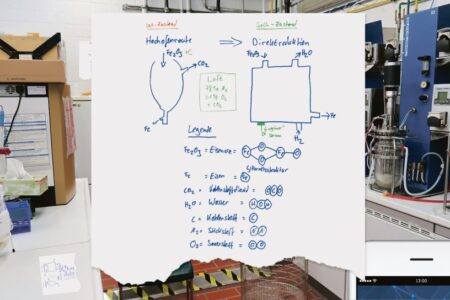 Ist-Zustand
Soll-Zustand
Hochofenroute ⇒ Direktreduktion
Fe₂O₃ + C
CO₂
Fe
Luft
78% N₂
Fe₂O₃
H₂O
Fe
H₂
Legende
Fe₂O₃ = Eisenerz =
Fe = Eisen = Fe
CO₂ = Kohlenstoffdioxid = O C O
H₂O = Wasser = H O H
C = Kohlenstoff = C
N₂ = Stickstoff = N N
O₂ = Sauerstoff = O O
13:00